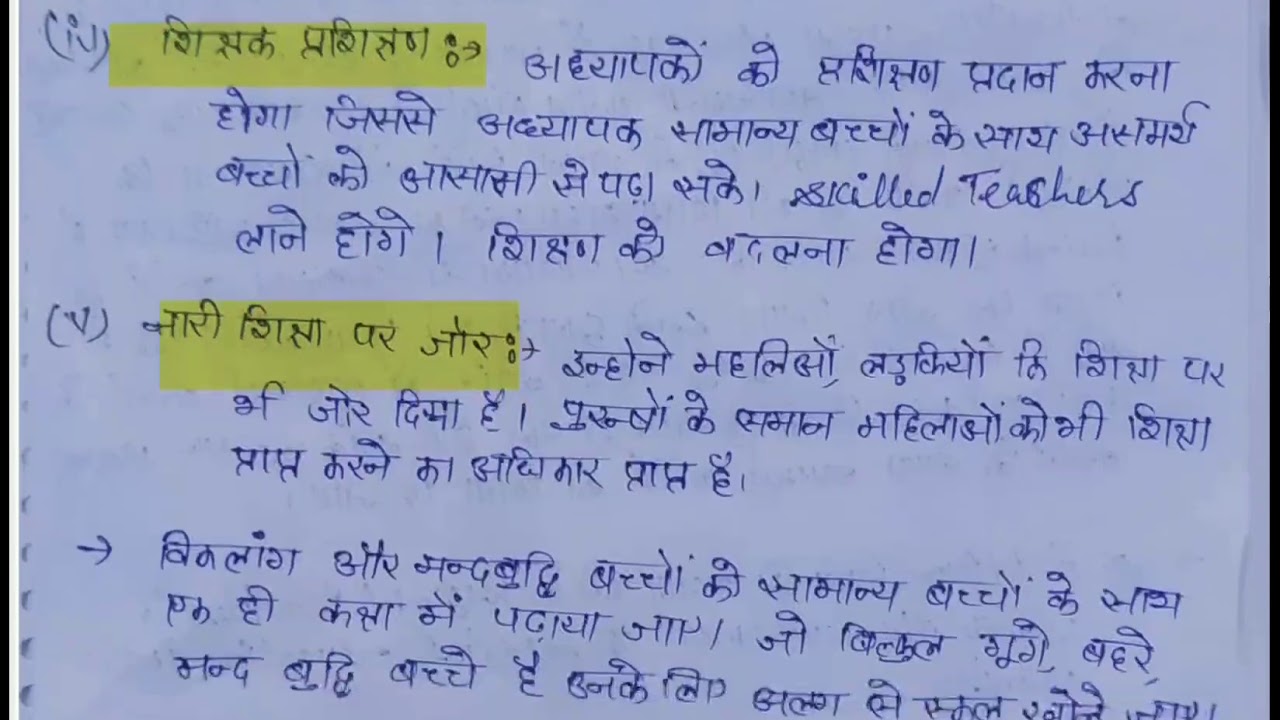 (iv) शिक्षक प्रशिक्षण :→ अध्यापकों को प्रशिक्षण प्रदान करना
होगा जिससे अध्यापक सामान्य बच्चों के साथ असमर्थ
बच्चों को आसानी से पढ़ा सके। skilled Teachers
लाने होगे। शिक्षण को बदलना होगा।
(v) नारी शिक्षा पर जोर :→ इन्होने महलिओं, लड़कियों कि शिक्षा पर
भी जोर दिया है। पुरूषों के समान महिलाओं को भी शिक्षा
प्राप्त करने का अधिकार प्राप्त है।
→ विकलांग और मन्दबुद्धि बच्चों को सामान्य बच्चों के साथ
एक ही कक्षा में पढ़ाया जाए। जो बिल्कुल गूंगे, बहरे,
मन्द बुद्धि बच्चे है उनके लिए अलग से स्कूल खोले जाए।